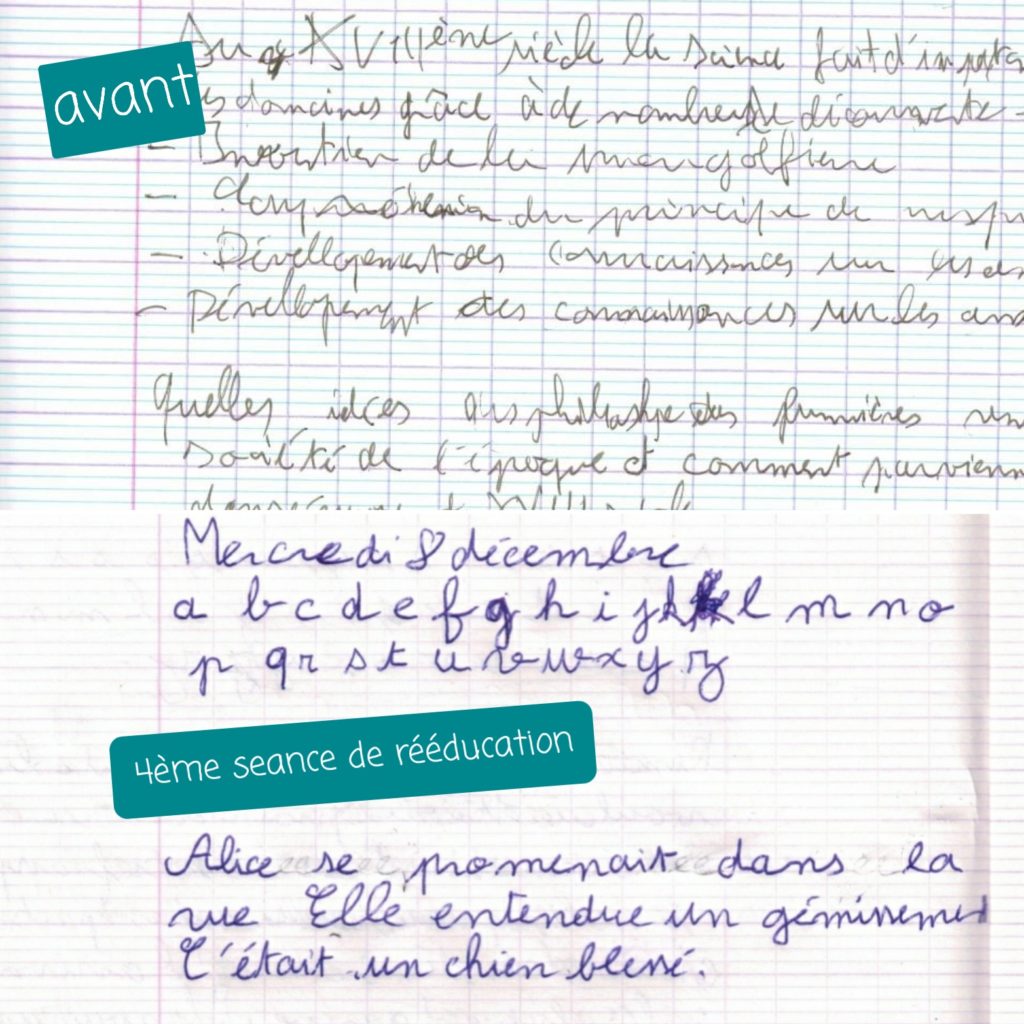 Au XVIIIème siècle la science fait d'importa
avant
s domaines grâce à de nombreuse découverte
- Invention de la mongolfière
- Compréhension du principe de respi
- Dévellopement des connaissances sur les
- Dévellopement des connaissances sur les
Quelles idées des lumières
société de l'époque et comment parvienn
Mercredi 8 décembre
a b c d e f g h i j k l m n o
p q r s t u v w x y z
4ème seance de rééducation
Alice se promenait dans la
rue Elle entendue un gémissement
C'était un chien blessé.